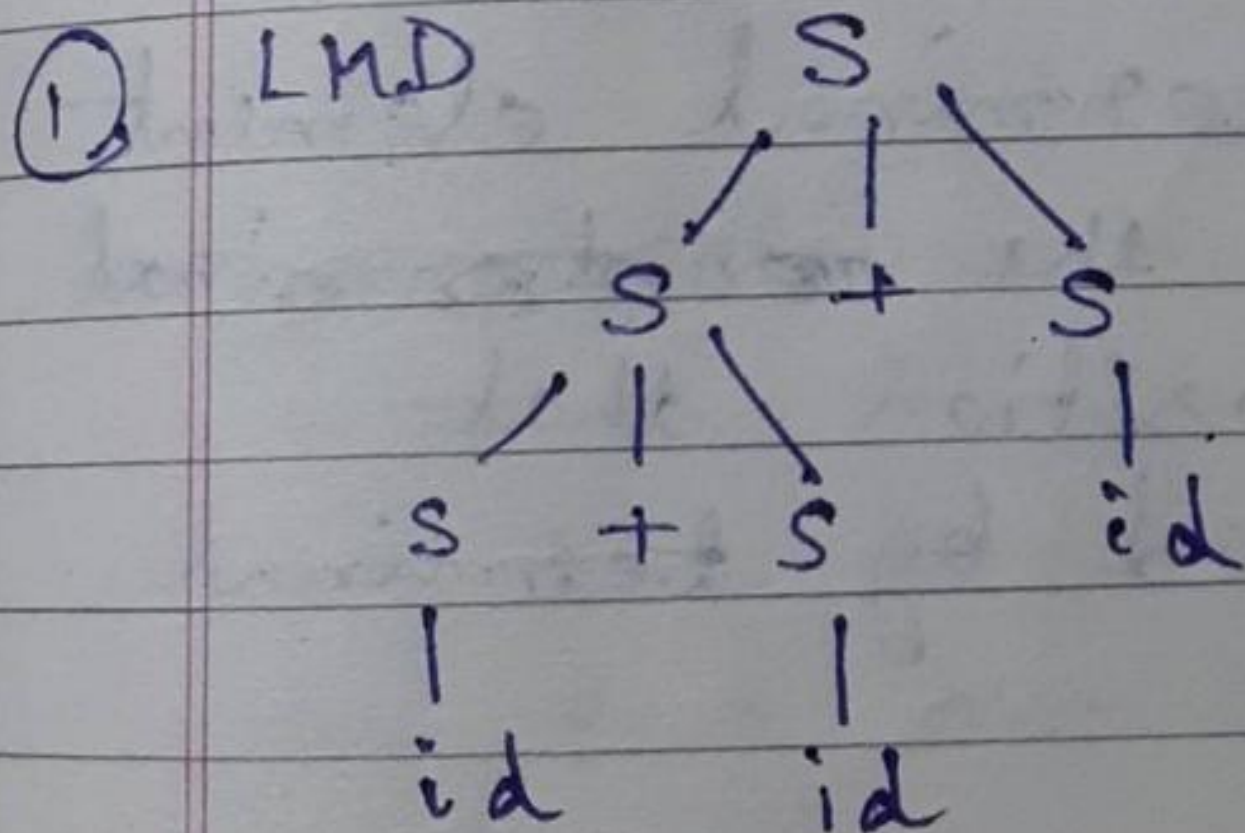 ① LMD S
S + S
S + S id
id id